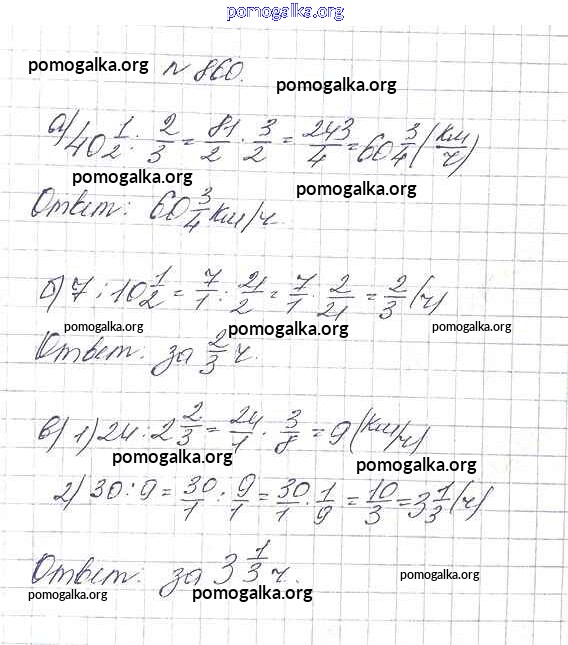 pomogalka.org
pomogalka.org
№ 860.
pomogalka.org
а) 40 1/2 : 2/3 = 81/2 · 3/2 = 243/4 = 60 3/4 (км/ч)
pomogalka.org
pomogalka.org
Ответ: 60 3/4 км/ч.
б) 7 : 10 1/2 = 7/1 : 21/2 = 7/1 · 2/21 = 2/3 (ч)
pomogalka.org
pomogalka.org
pomogalka.org
Ответ: за 2/3 ч.
в) 1) 24 : 2 2/3 = 24/1 · 3/8 = 9 (км/ч)
pomogalka.org
pomogalka.org
2) 30 : 9 = 30/1 : 9/1 = 30/1 · 1/9 = 10/3 = 3 1/3 (ч)
pomogalka.org
pomogalka.org
Ответ: за 3 1/3 ч.
pomogalka.org
pomogalka.org
pomogalka.org